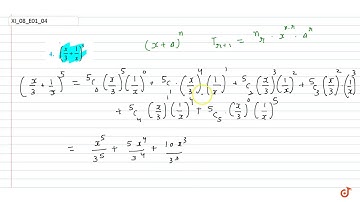 XI_08_E01_04
4. (x/3 + 1/x)^5
(x+a)^n   T_{r+1} = ^n_r · x^{n-r} · a^r
(x/3 + 1/x)^5 = ^5C_0 (x/3)^5 (1/x)^0 + ^5C_1 · (x/3)^4 · (1/x)^1 + ^5C_2 (x/3)^3 (1/x)^2 + ^5C_3 (x/3)^2 (1/x)^3
+ ^5C_4 (x/3)^1 (1/x)^4 + ^5C_5 · (x/3)^0 (1/x)^5
= x^5/3^5 + 5x^4/3^4 + 10x^3/3^3